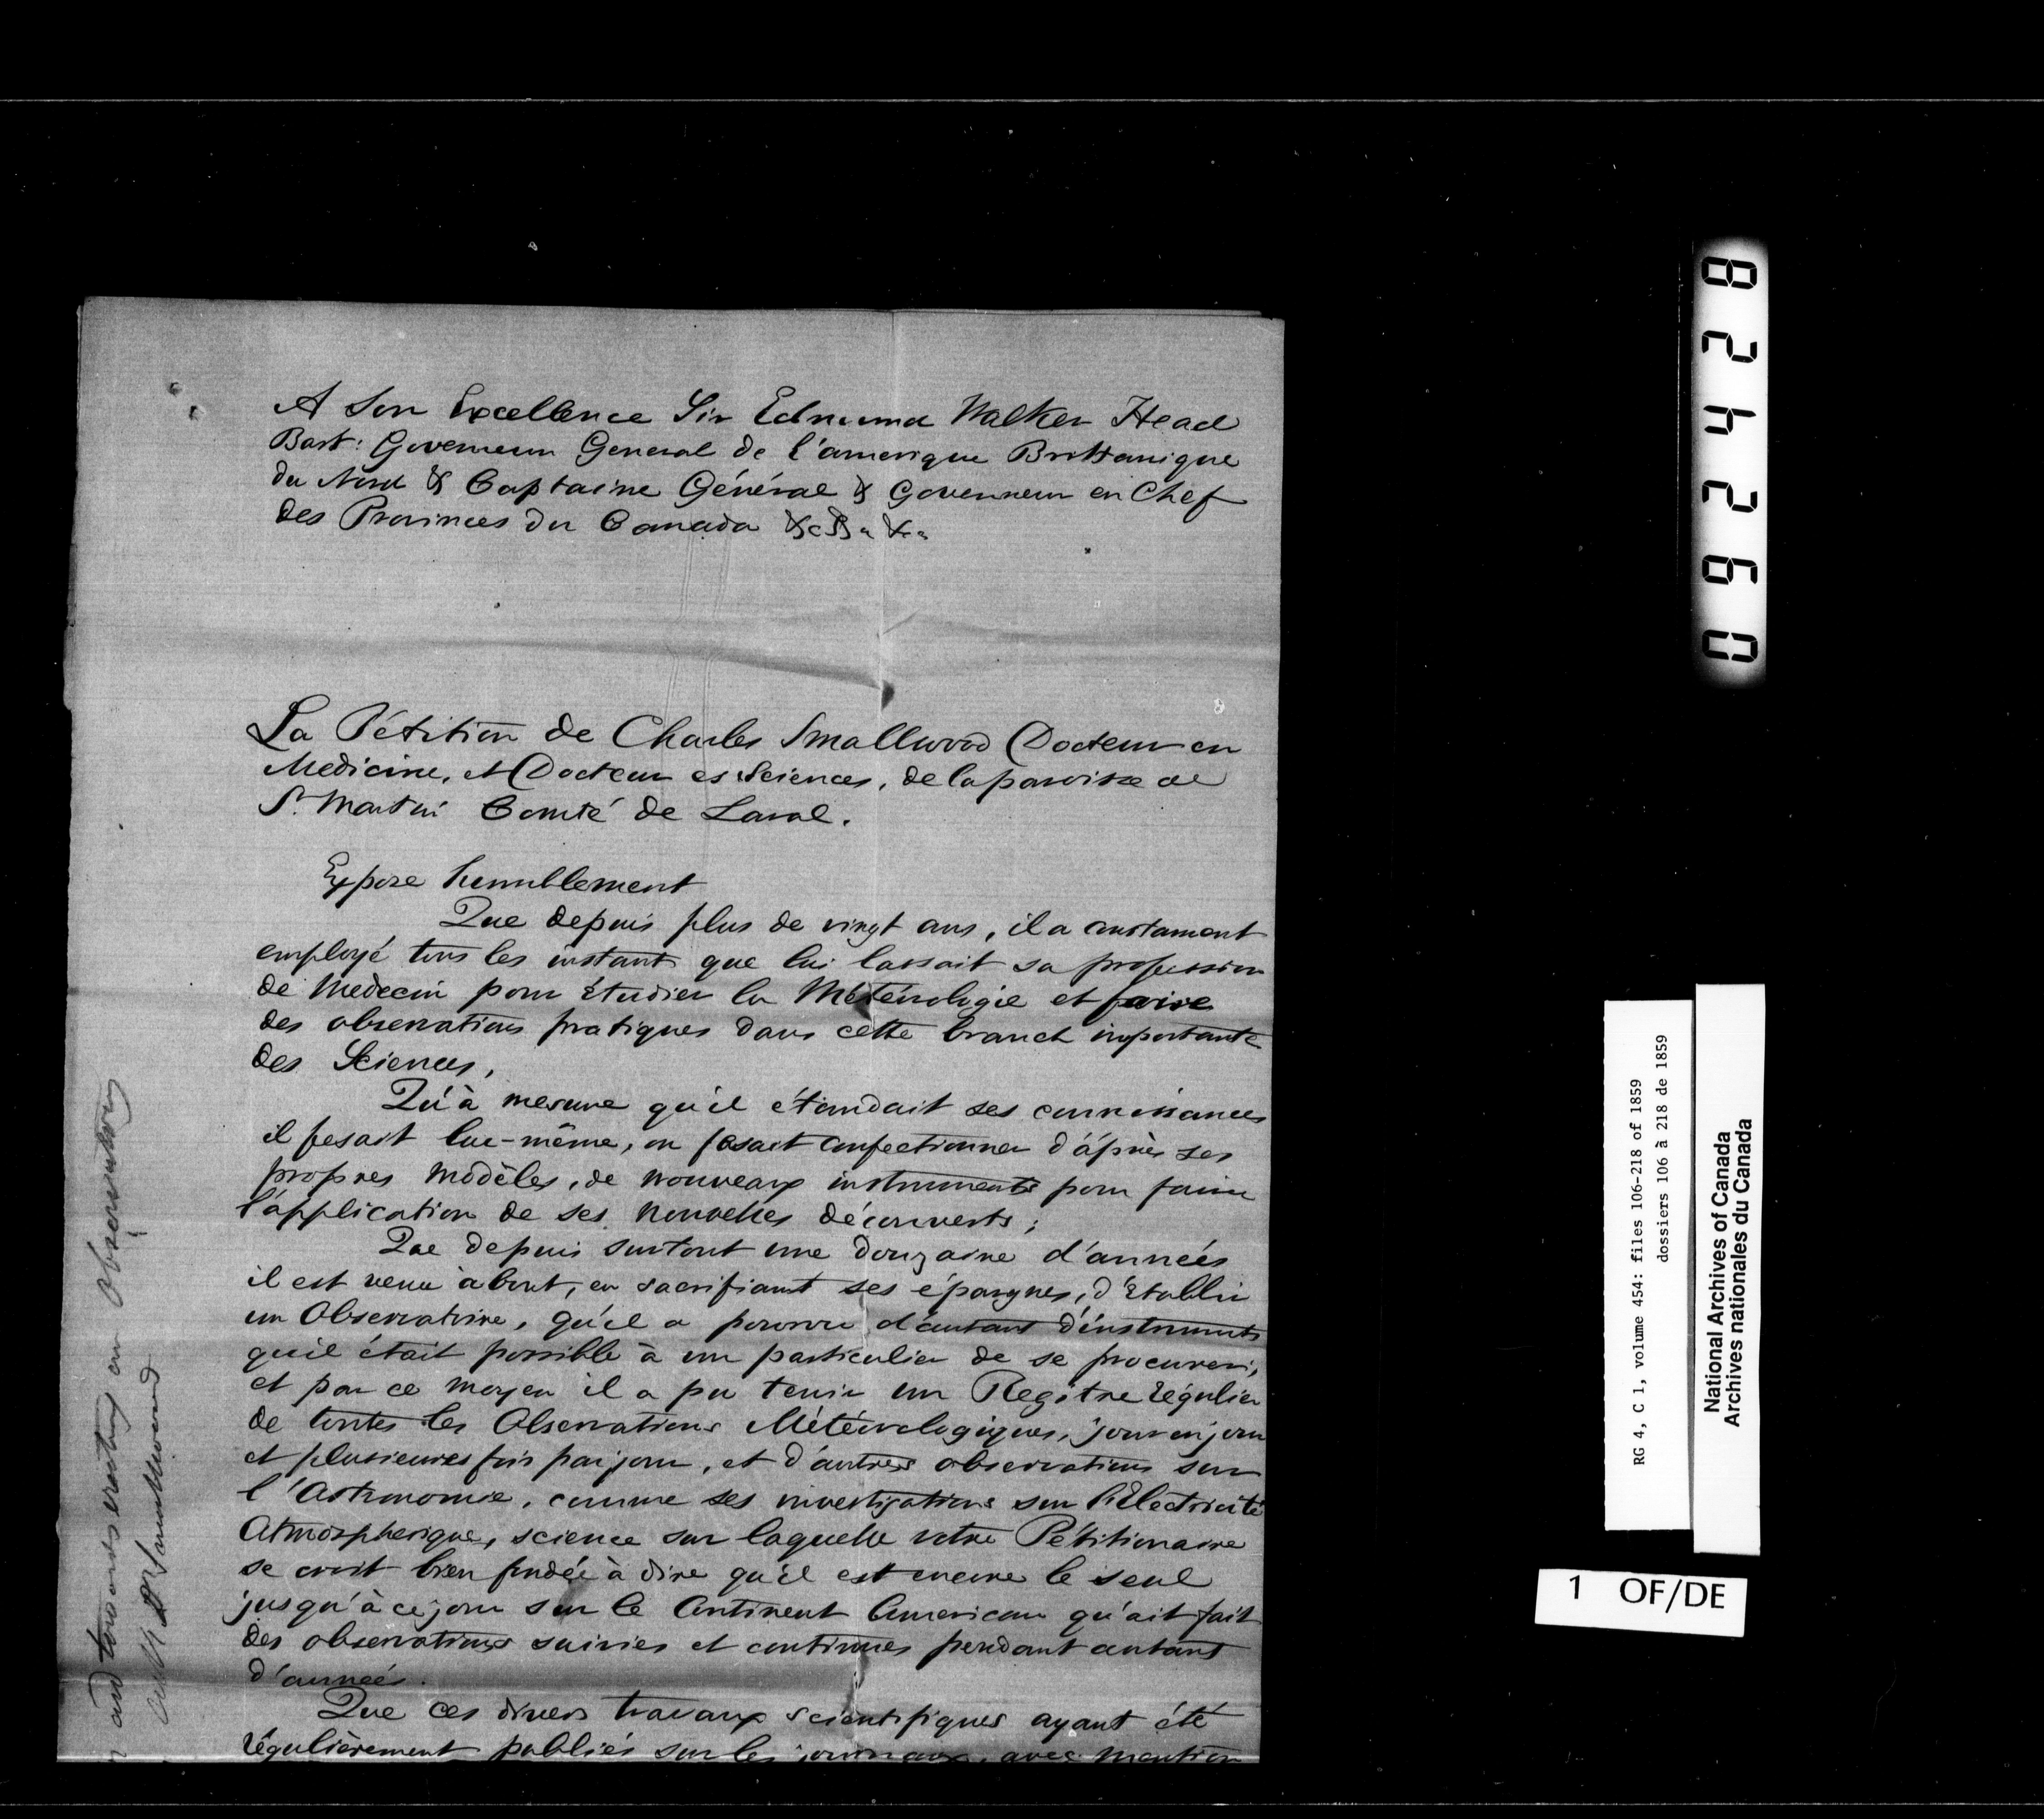 A Son Excellence Sir Edmund Walker Head
Bart: Governeur General de l'amerique Brittanique
du Nord & Captaine Général & Governneur en Chef
des Provinces du Canada &c &a &ca
La Pétition de Charles Smallwood Docteur en
Medicine, et Docteur es Sciences, de la paroisse de
St. Martin Comté de Laval.
Expose humblement
Que depuis plus de vingt ans, il a constament
employé tous les instants que lui lassait sa profession
de Medecin pour étudier la Météorologie et faire
des observations pratiques dans cette branch importante
des Sciences,
Qu'à mesure qu'il étandait ses connissances
il fesait lui-même, ou fesait confectionner d'áprès ses
propres modèles, de nouveaux instruments pour faire
l'application de ses nouvelles découverts;
Que depuis surtout une douzaine d'années
il est venu à bout, en sacrifiant ses épargnes, d'établir
un Observatoire, qu'il a pourvu d'autant d'instruments
qu'il était possible à un particulier de se procurer;
et par ce moyen il a pu tenir un Regitre régulier
de toutes les Observations Météorologiques, jour en jour
et plusieures fois par jour, et d'autres observations sur
l'Astronomie, comme ses investigations sur l'Electricité
Atmospherique, science sur laquelle votre Pétitionaire
se croit bien fondée à dire qu'il est encore le seul
jusqu'à ce jour sur le Continent American qu'ait fait
des observations suivies et continues pendant autant
d'années.
Que ces divers travaux scientifiques ayant été
régulièrement publiés sur les journaux, avec mention
and towards erecting an Observatory
Dr Smallwood
82429 0
RG 4, C 1, volume 454: files 106-218 of 1859
dossiers 106 à 218 de 1859
National Archives of Canada
Archives nationales du Canada
1 OF/DE